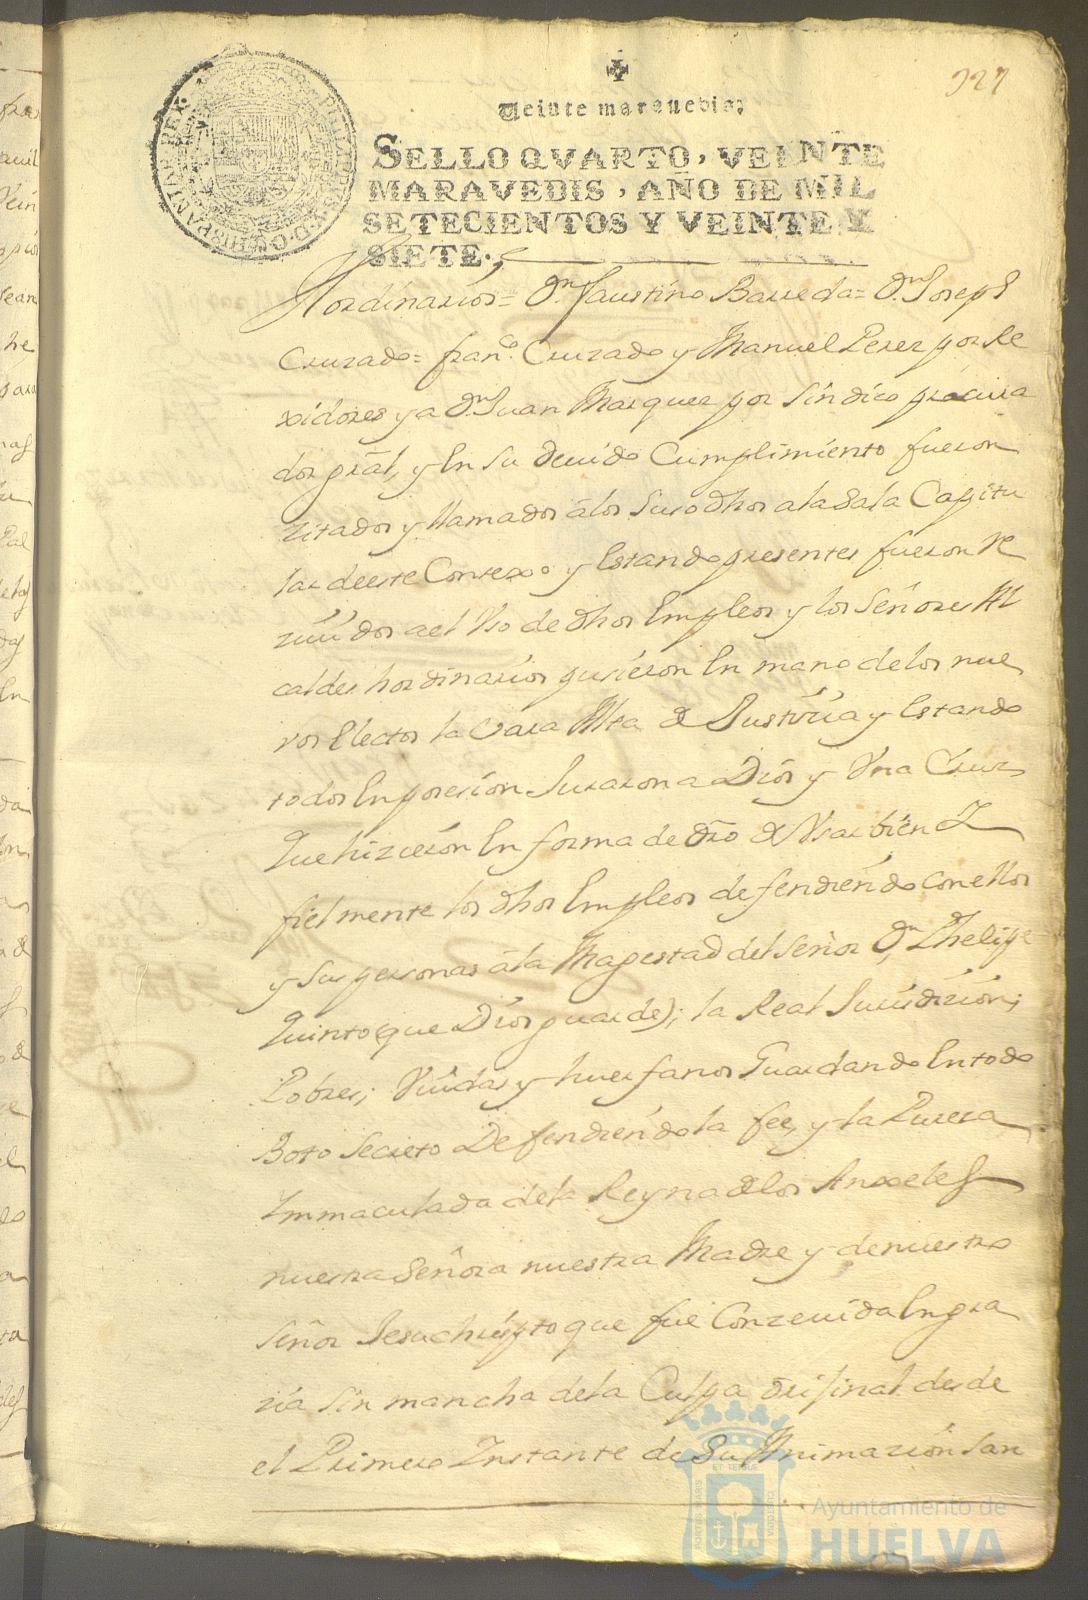 927
Veinte maravedis
SELLO QVARTO, VEINTE
MARAVEDIS, AÑO DE MIL
SETECIENTOS Y VEINTE Y
SIETE.
PHILIPPUS V D G HISPANIAR REX
ordinarios = Dn. Faustino Barreda = Dn. Joseph
Cruzado = franco. Cruzado y Manuel Perez por Re
xidores y a Dn. Juan Marquez por Sindico procura
dor gral, y En su deuido Cumplimiento fueron
zitados y llamados â los Susodhos a la Sala Capitu
lar de este Conzexo y Estando presentes fueron Re
ziuidos a el Vso de dhos Empleos y los Señores Al
caldes hordinarios pusieron En mano de los nue
vos Electos la Vara Alta de Justizia y Estando
todos En posesion Juraron a Dios y Vna Cruz
que hizieron En forma de dro de Vsar bien Y
fielmente los dhos Empleos defendiendo con ellos
y sus personas â la Magestad del Señor Dn. Phelipe
Quinto (que Dios guarde); la Real Jurisdizion;
Pobres; Viudas y huerfanos Guardando En todo
Boto Secreto Defendiendo la fee, y la Pureza
Immaculada de la Reyna de los Anxeles
nuestra Señora nuestra Madre y de nuestro
Señor Jesuchripto que fue Conzeuida En gra
zia sin mancha de la Culpa original desde
el Primero Instante de Su Animazion San
Ayuntamiento de
HUELVA
PORTUS MARIS
ET TERRE
CUSTODIA